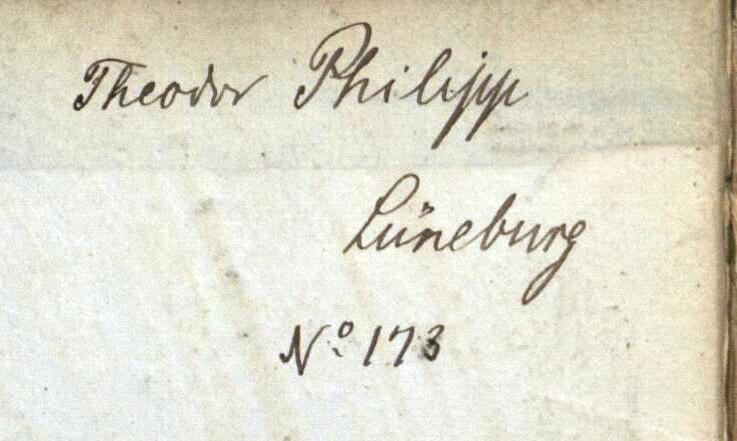 Theodor Philipp
Lüneburg
No. 173